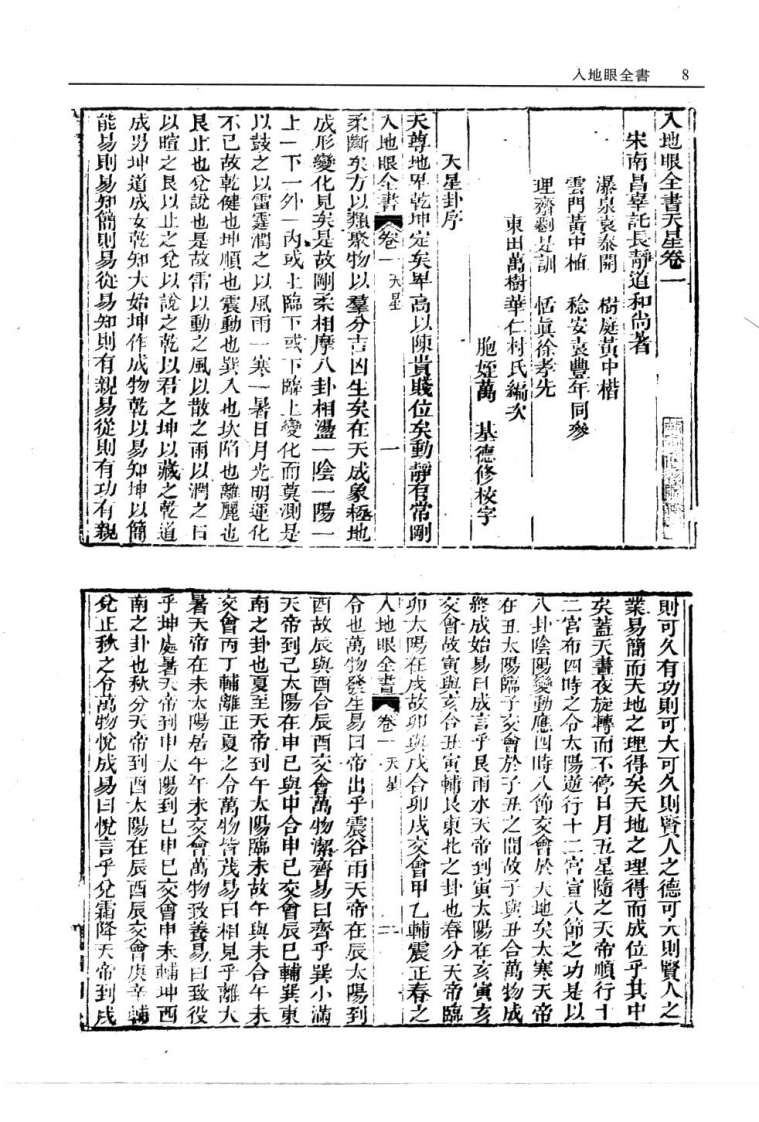 入地眼全書 8
入地眼全書天星卷一
宋南昌辜託長靜道和尚著
瀑泉袁泰開 樹庭黃中楷
雲門黃中植 稔安袁豐年同參
理齋劉是訓 恬眞徐孝先
東田萬樹華仁村氏編次
胞姪萬 基德修校字
天星卦序
天尊地卑乾坤定矣卑高以陳貴賤位矣動靜有常剛
入地眼全書 卷一 天星 一
柔斷矣方以類聚物以羣分吉凶生矣在天成象極地
成形變化見矣是故剛柔相摩八卦相盪一陰一陽一
上一下一外一內或上臨下或下臨上變化而莫測是
以鼓之以雷霆潤之以風雨一寒一暑日月光明運化
不已故乾健也坤順也震動也巽入也坎陷也離麗也
艮止也兌說也是故雷以動之風以散之雨以潤之日
以暄之艮以止之兌以說之乾以君之坤以藏之乾道
成男坤道成女乾知大始坤作成物乾以易知坤以簡
能易則易知簡則易從易知則有親易從則有功有親
則可久有功則可大可久則賢人之德可大則賢人之
業易簡而天地之理得矣天地之理得而成位乎其中
矣蓋天晝夜旋轉而不停日月五星隨之天帝順行十
二宮布四時之令太陽逆行十二宮宣八節之功是以
八卦陰陽變動應四時八節交會於天地矣大寒天帝
在丑太陽臨子交會於子丑之間故子與丑合萬物成
終成始易曰成言乎艮雨水天帝到寅太陽在亥寅亥
交會故寅與亥合丑寅輔艮東北之卦也春分天帝臨
卯太陽在戌故卯與戌合卯戌交會甲乙輔震正春之
入地眼全書 卷一 天星 二
令也萬物發生易曰帝出乎震谷雨天帝在辰太陽到
酉故辰與酉合辰酉交會萬物潔齊易曰齊乎巽小滿
天帝到巳太陽在申巳與申合申巳交會辰巳輔巽東
南之卦也夏至天帝到午太陽臨未故午與未合午未
交會丙丁輔離正夏之令萬物皆茂易曰相見乎離大
暑天帝在未太陽居午午未交會萬物致養易曰致役
乎坤處暑天帝到申太陽到巳申巳交會申未輔坤西
南之卦也秋分天帝到酉太陽在辰酉辰交會庚辛輔
兌正秋之令萬物悅成易曰悅言乎兌霜降天帝到戌